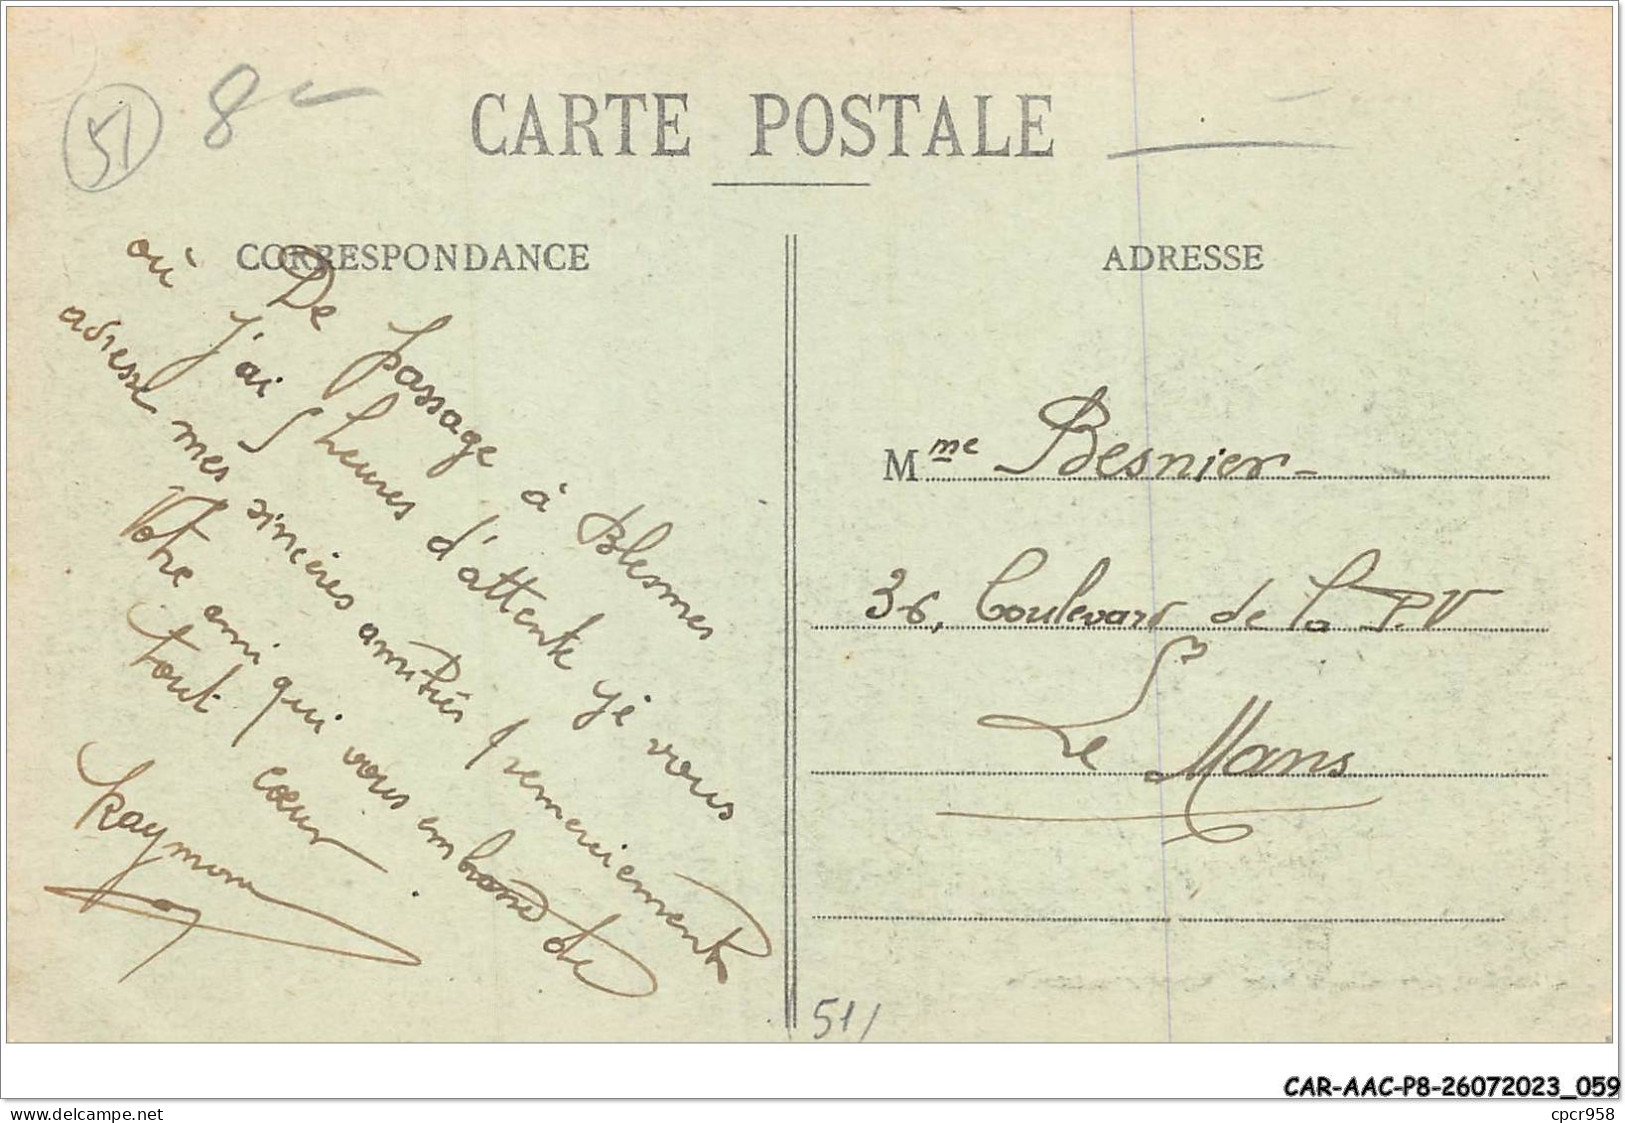 51
8
CARTE POSTALE
CORRESPONDANCE
ADRESSE
De passage à Blesmes
où j'ai 5 heures d'attente je vous
adresse mes sincères amitiés remerciements
Votre ami qui vous embrasse de
tout coeur
Raymond
Mme Besnier
36, Boulevard de la P.V
Le Mans
51/
CAR-AAC-P8-26072023_059
www.delcampe.net
cpcr958